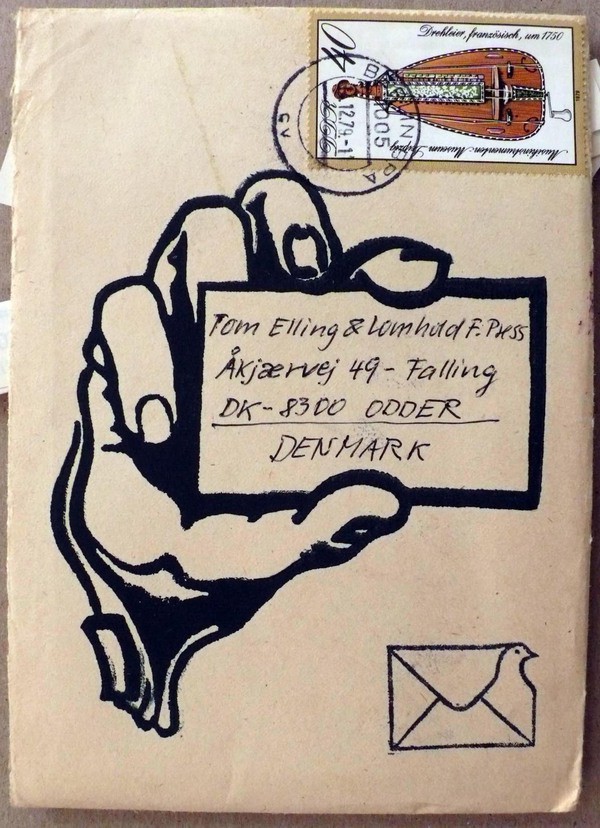 Drehleier, französisch, um 1750
40
Musikinstrumenten-Museum Leipzig
12.79-11
Tom Elling & Lomhold F. Press
Åkjærvej 49 - Falling
DK - 8300 ODDER
DENMARK